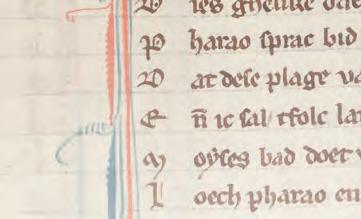 D ies ghelike dae
P harao sprac bid
D at dese plage va
E n̄ ic sal tfolc lat
M oyses bad doet
L oech pharao en